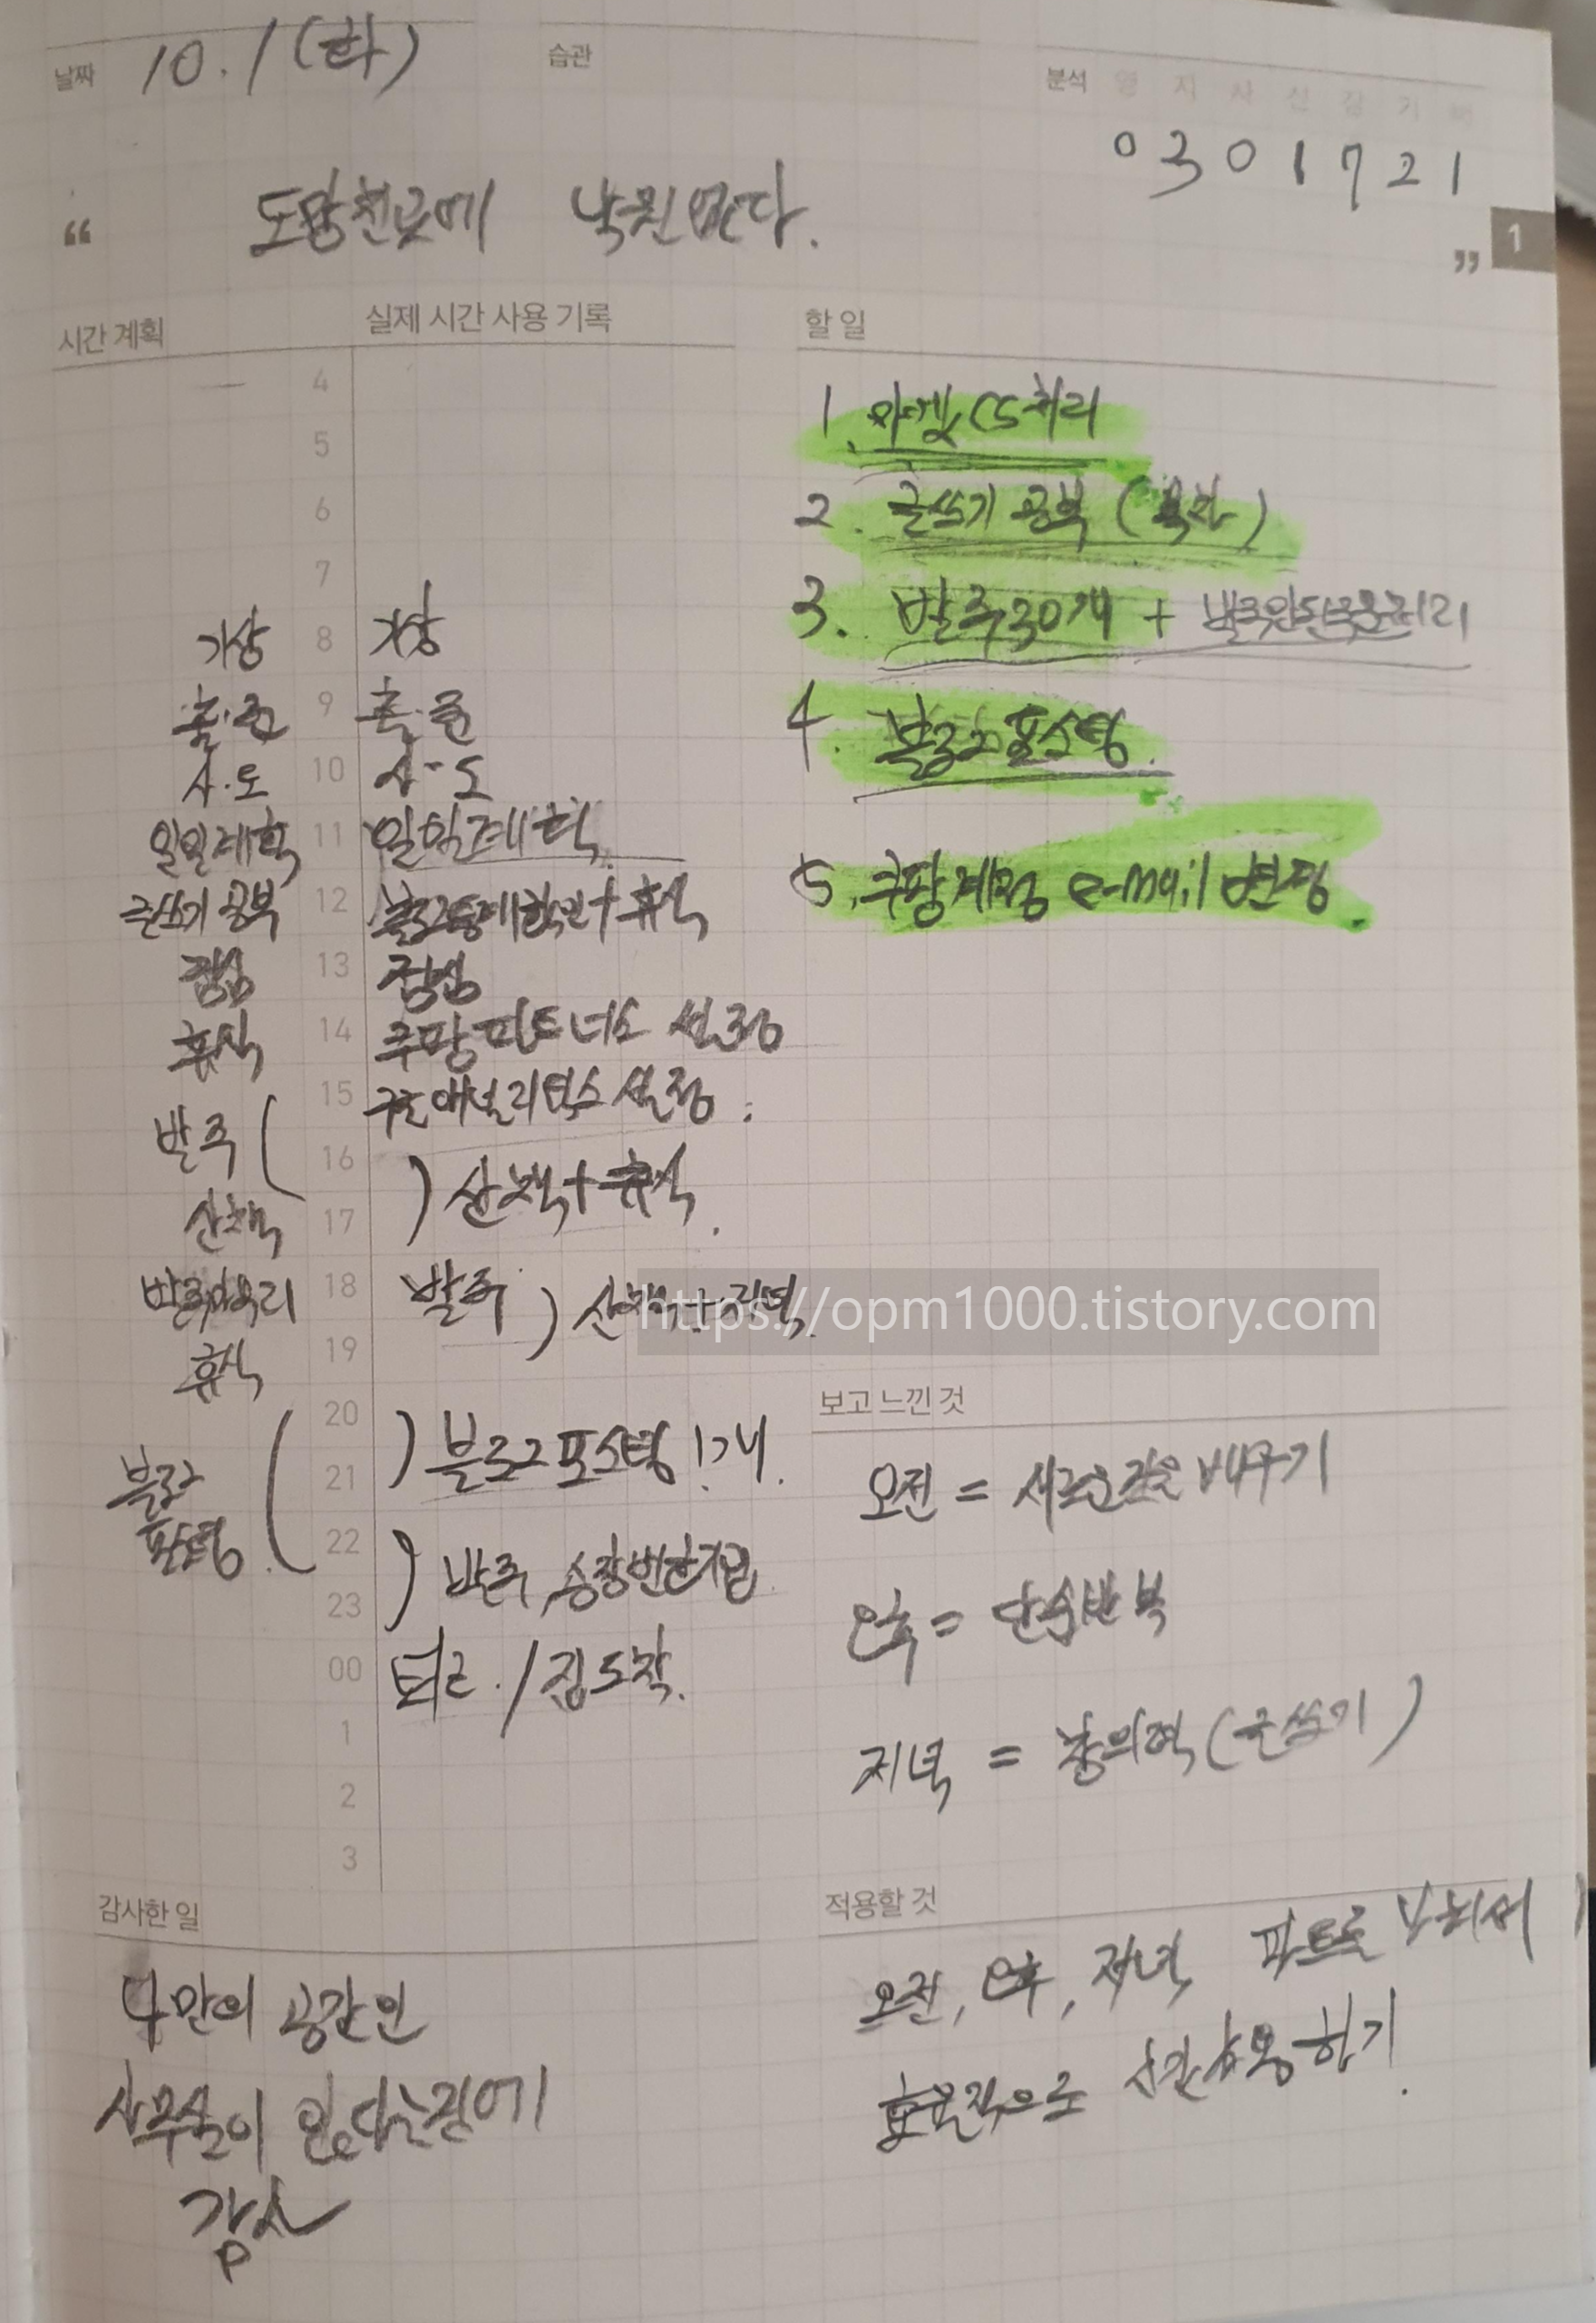 날짜 10.1 (화)
습관
분석 영 지 사 신 감 기 빼
0 3 0 1 7 2 1
“ 도망친곳에 낙원없다. ”
1
시간 계획
실제 시간 사용 기록
할 일
4
5
6
7
기상 8 기상
출·근 9 출·근
샤·도 10 샤·도
일일계획 11 일일계획
글쓰기 공부 12 블로그통계확인+휴식
점심 13 점심
휴식 14 쿠팡파트너스 설정
15 구글애널리틱스 설정.
발주 ( 16 ) 산책+휴식.
산책 17
발주마무리 18 발주 ) 산책+저녁.
휴식 19
20
블로그 포스팅. ( 21 ) 블로그포스팅 1개.
22
23 ) 발주, 송장번호기입.
00 퇴근. / 집도착.
1
2
3
1. 마켓CS처리
2. 글쓰기 공부 ( )
3. 발주30개 +
4. 블로그포스팅.
5. 쿠팡계정 e-mail 변경.
https://opm1000.tistory.com
보고 느낀 것
오전 = 새로운것을 배우기
오후 = 단순반복
저녁 = 창의력 (글쓰기)
감사한 일
나만의 공간인
사무실이 있다는것에
감사
적용할 것
오전, 오후, 저녁 파트로 나눠서
효율적으로 시간사용하기.